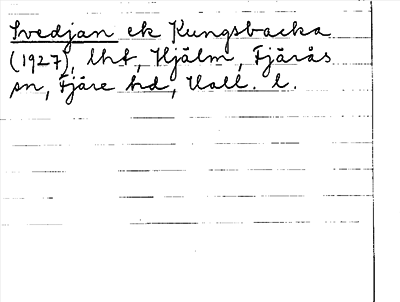 Svedjan ek Kungsbacka
(1927), lht, Hjälm, Fjärås
sn, Fjäre hd, Hall. l.